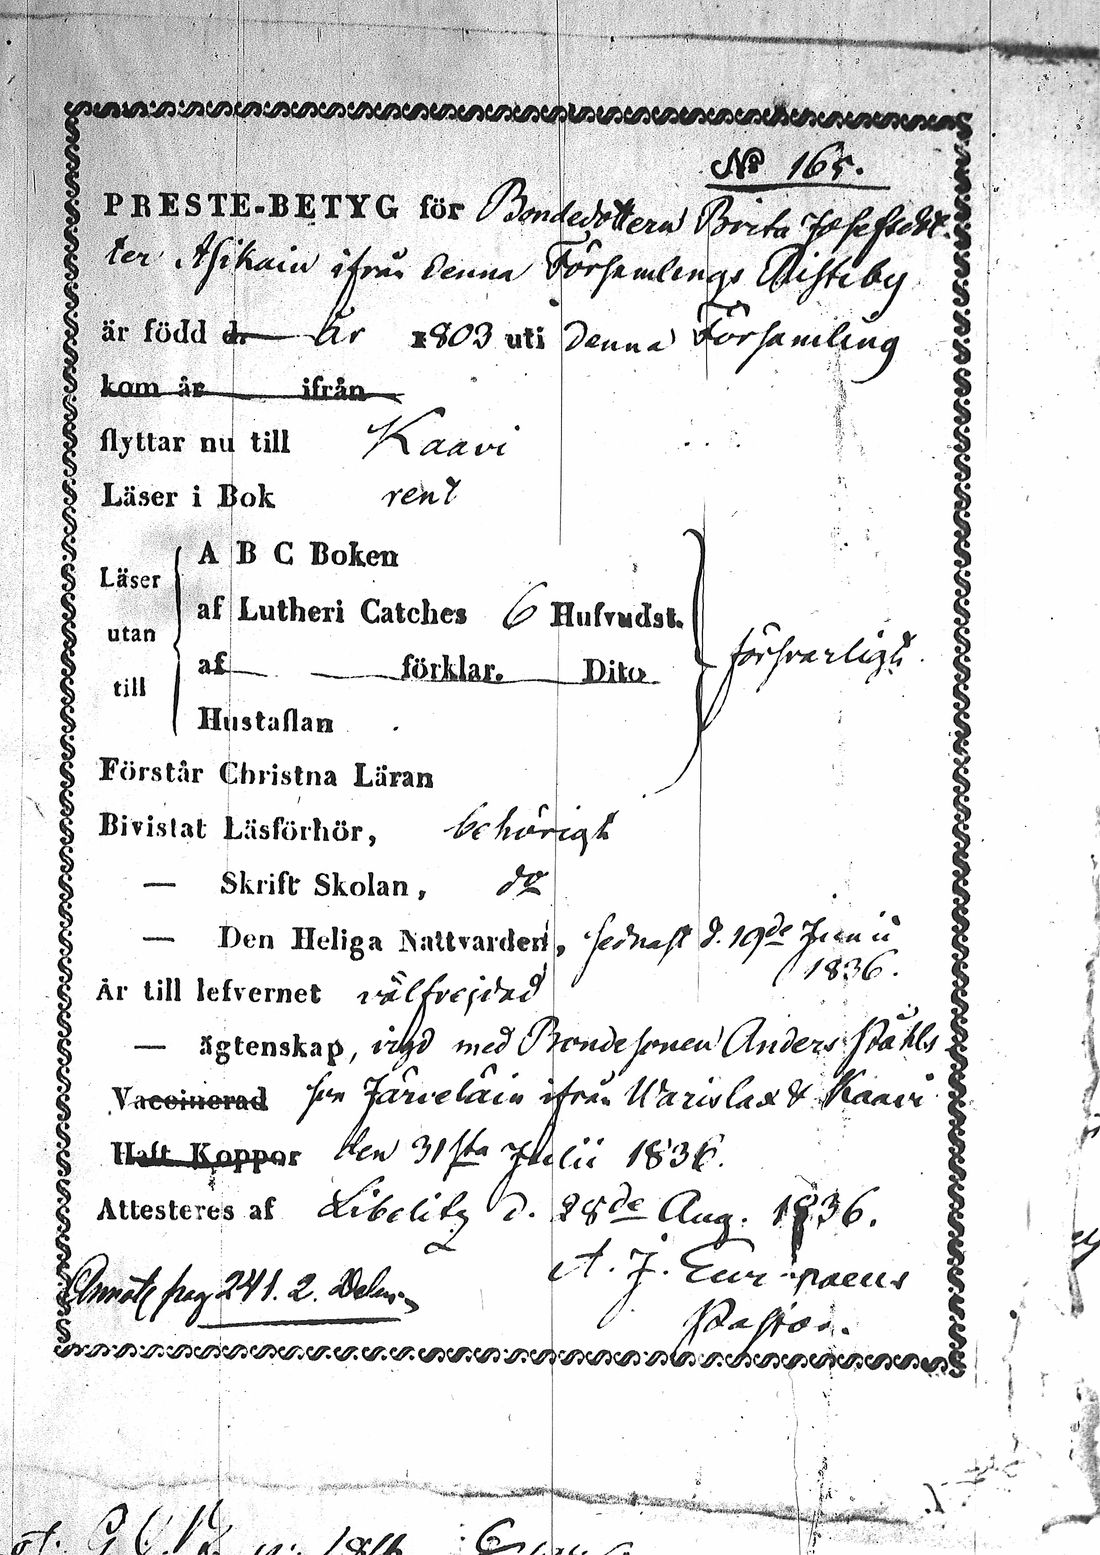 No 165.
PRESTE-BETYG för Bondedottern Brita Josefsdot-
ter Asikain ifrån denna Församlings Risteby
är född d. år 1803 uti denna Församling
kom år ifrån
flyttar nu till Kaavi
Läser i Bok rent
A B C Boken
Läser utan till
af Lutheri Catches 6 Hufvudst.
försvarligt.
af förklar. Dito
Hustaflan
Förstår Christna Läran
Bivistat Läsförhör, behörigt
— Skrift Skolan, do
— Den Heliga Nattvarden, sednast d. 19de Junii
1836.
Är till lefvernet välfrejdad
— ägtenskap, vigd med Bondesonen Anders Påhls
Vaccinerad son Järveläin ifrån Warislax & Kaavi
Haft Koppor den 31sta Julii 1836.
Attesteres af Libelitz d. 28de Aug. 1836.
A. J. Europaeus
Pastor.
pag 241. 2. Delen